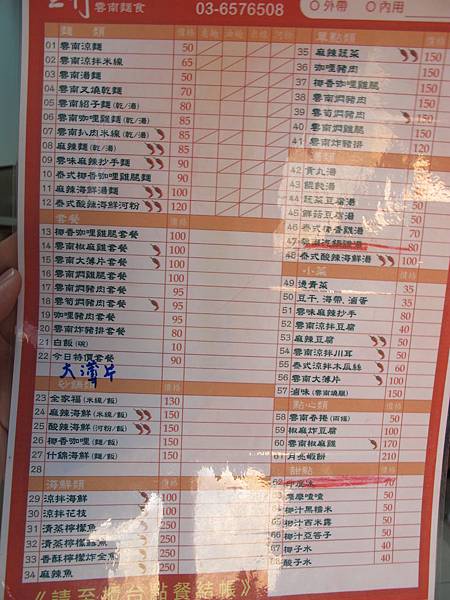 雲南麵食
03-6576508
外帶 內用
麵 類 價格
01 雲南涼麵 50
02 雲南涼拌米線 65
03 雲南湯麵 50
04 雲南叉燒乾麵 70
05 雲南紹子麵(乾/湯) 80
06 雲南咖哩雞麵(乾/湯) 80
07 雲南扒肉米線(乾/湯) 85
08 麻辣麵(乾/湯) 90
09 雲味麻辣抄手麵 90
10 泰式椰香咖哩雞麵 90
11 麻辣海鮮湯麵 100
12 泰式酸辣海鮮河粉 120
套餐 價格
13 椰香咖哩雞腿套餐 100
14 雲南椒麻雞套餐 100
15 雲南大薄片套餐 100
16 雲南燜雞腿套餐 100
17 雲南燜豬肉套餐 95
18 雲筍燜豬肉套餐 95
19 咖哩豬肉套餐 90
20 雲南炸豬排套餐 80
21 白飯(碗) 10
22 今日特價套餐 90
大薄片
價格
23 全家福(米線/飯) 130
24 麻辣海鮮(米線/飯) 150
25 酸辣海鮮(河粉/飯) 150
26 椰香咖哩(麵/飯) 100
27 什錦海鮮(麵/飯) 100
28
海鮮類 價格
29 涼拌海鮮 100
30 涼拌花枝 100
31 清蒸檸檬魚 250
32 清蒸檸檬鱈魚 250
33 香酥檸檬炸全魚 250
34 麻辣魚 250
單點類 價格
35 麻辣蔬菜 150
36 咖哩豬肉 150
37 椰香咖哩雞腿 150
38 雲南燜豬肉 150
39 雲筍燜豬肉 150
40 雲南燜雞腿 150
41 雲南炸豬排 120
42 貢丸湯
43 餛飩湯
44 蔬菜豆腐湯
45 鮮菇豆腐湯
46 泰式椰香雞湯
80
48 泰式酸辣海鮮湯 100
小菜 價格
49 燙青菜 35
50 豆干,海帶,滷蛋 35
51 雲味麻辣抄手 80
52 雲南涼拌豆腐 40
53 麻辣豆腐 50
54 雲南涼拌川耳 50
55 泰式涼拌木瓜絲 60
56 雲南大薄片 50
57 滷味 50
點心類 價格
58 雲南春捲(兩條) 50
59 椒麻炸豆腐 100
60 雲南椒麻雞 170
61 月亮蝦餅 210
甜點
62 70
摩摩喳喳 50
椰汁黑糯米 50
椰汁西米露 50
椰汁豆笞子 50
67 椰子水 40
酸子水 40
《請至櫃台點餐結帳》